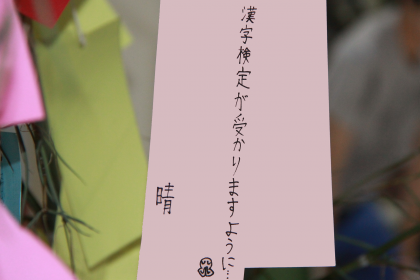 漢字検定が受かりますように…
晴